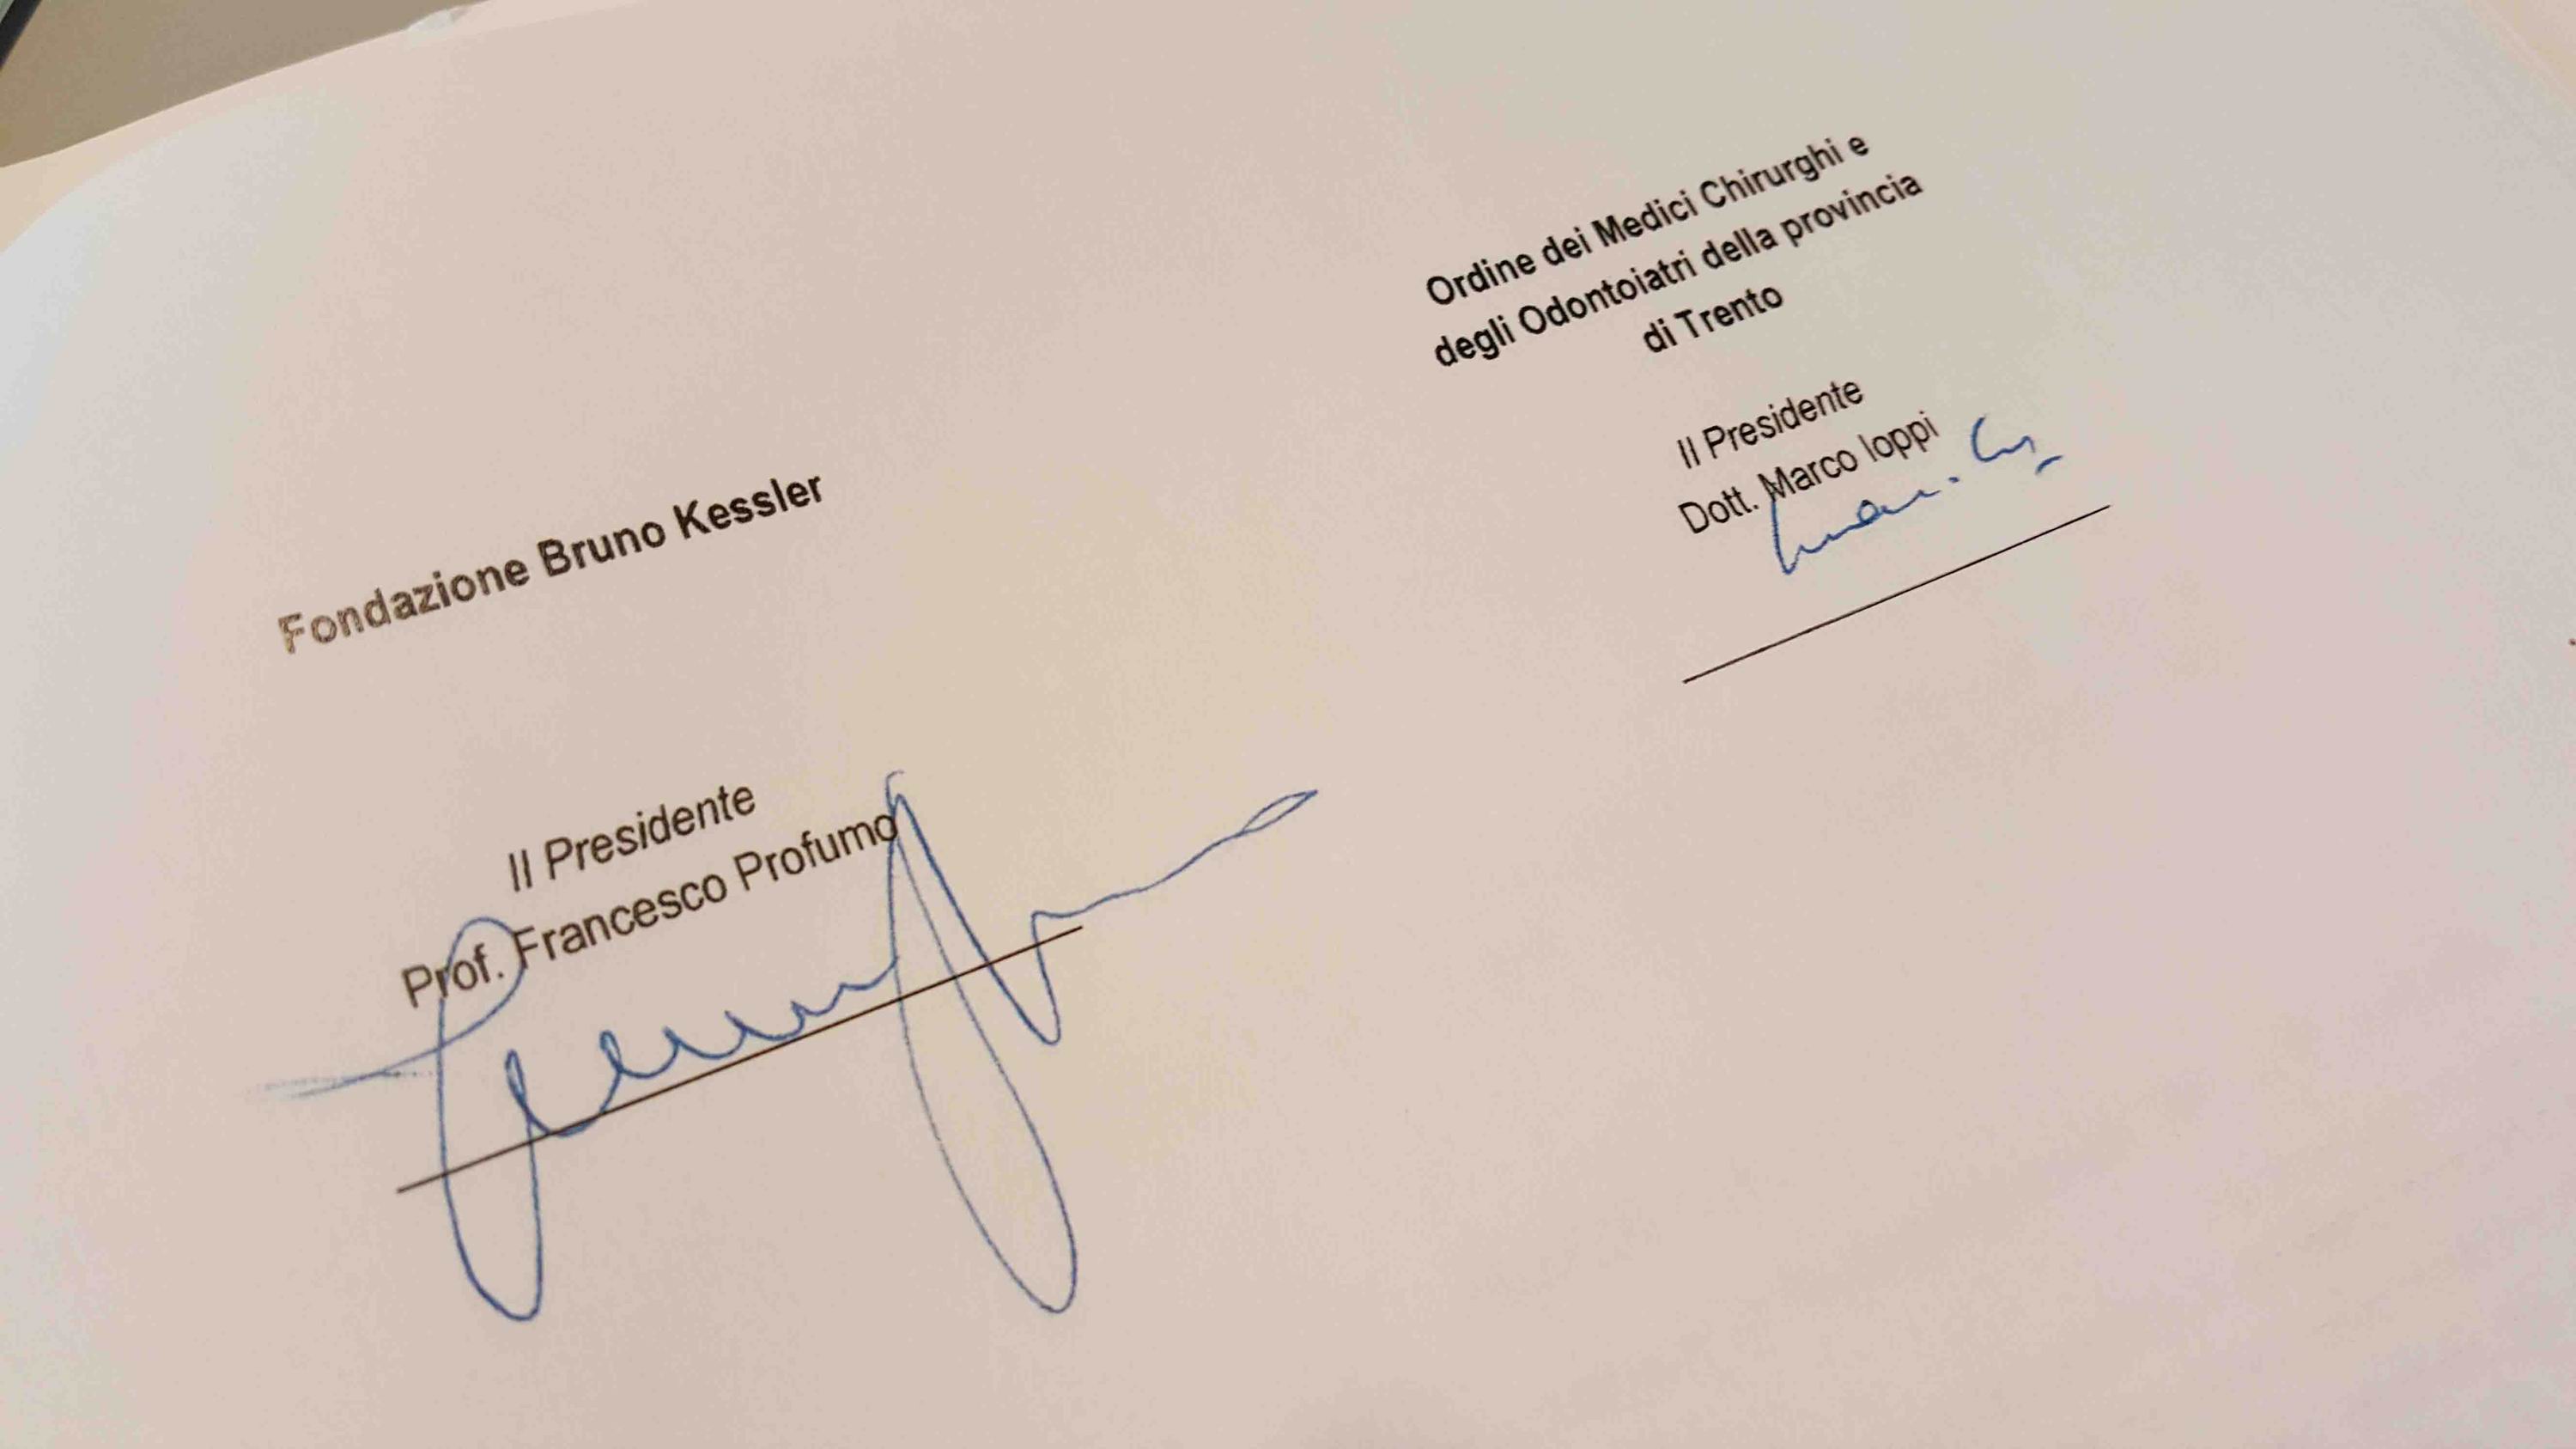 Fondazione Bruno Kessler
Il Presidente
Prof. Francesco Profumo
Ordine dei Medici Chirurghi e
degli Odontoiatri della provincia
di Trento
Il Presidente
Dott. Marco Ioppi